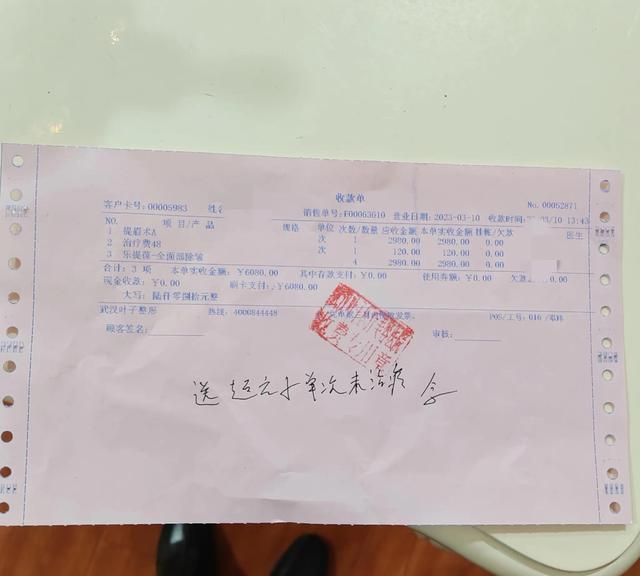 收款单
客户卡号:00005983 姓名 No. 00052871
销售单号:F00063610 营业日期:2023-03-10 收款时间: 03/10 13:43
NO. 项目/产品 规格 单位 次数/数量 应收金额 本单实收金额 挂账/欠款 医生
1 提眉术A 次 1 2980.00 2980.00 0.00
2 治疗费48 次 1 120.00 120.00 0.00
3 乐提葆-全面部除皱 4 2980.00 2980.00 0.00
合计: 3 项 本单实收金额: ￥6080.00 其中存款支付: ￥0.00 使用券额: ￥0.00 欠款
现金收款: ￥0.00 刷卡支付: ￥6080.00
大写: 陆仟零捌拾元整
武汉叶子整形 热线: 4000844448 发票。 POS/工号: 016 /
顾客签名: 审核:
送 单次未治疗